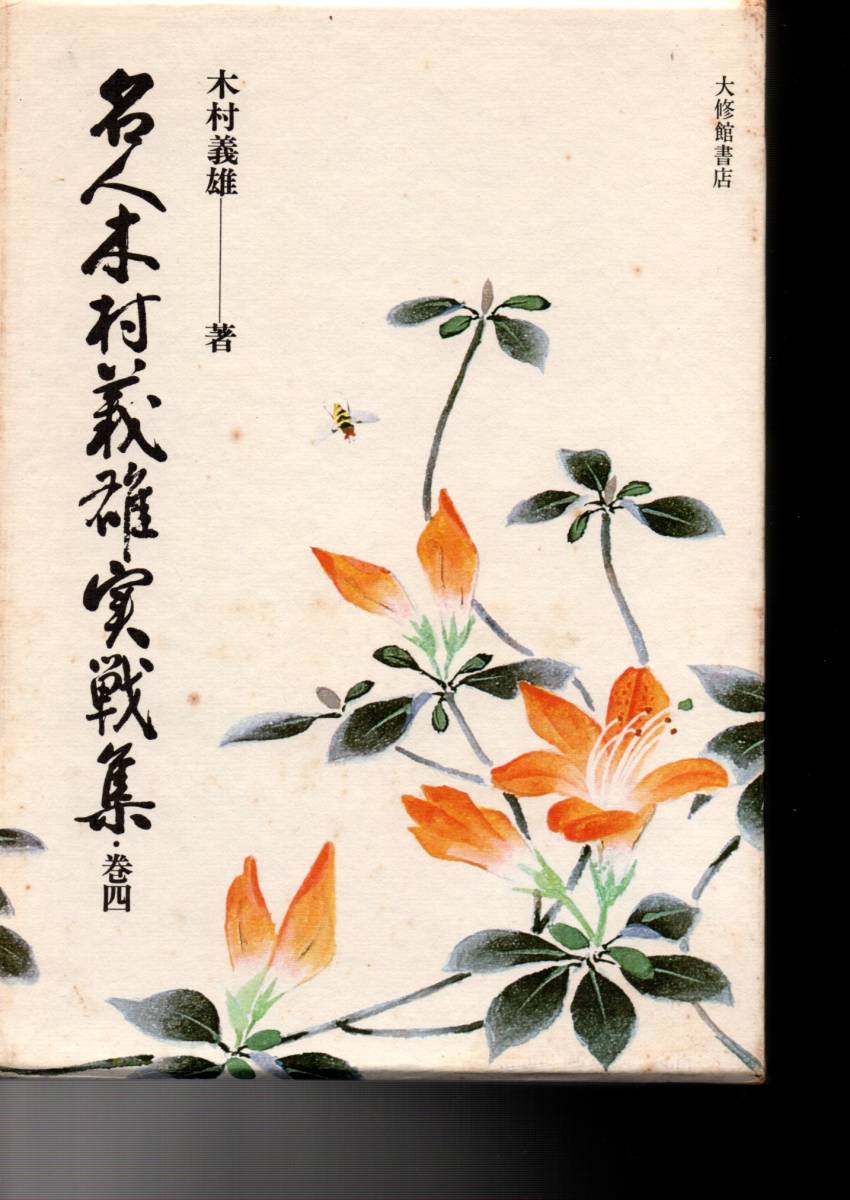 大修館書店
木村義雄――著
名人木村義雄実戦集・巻四